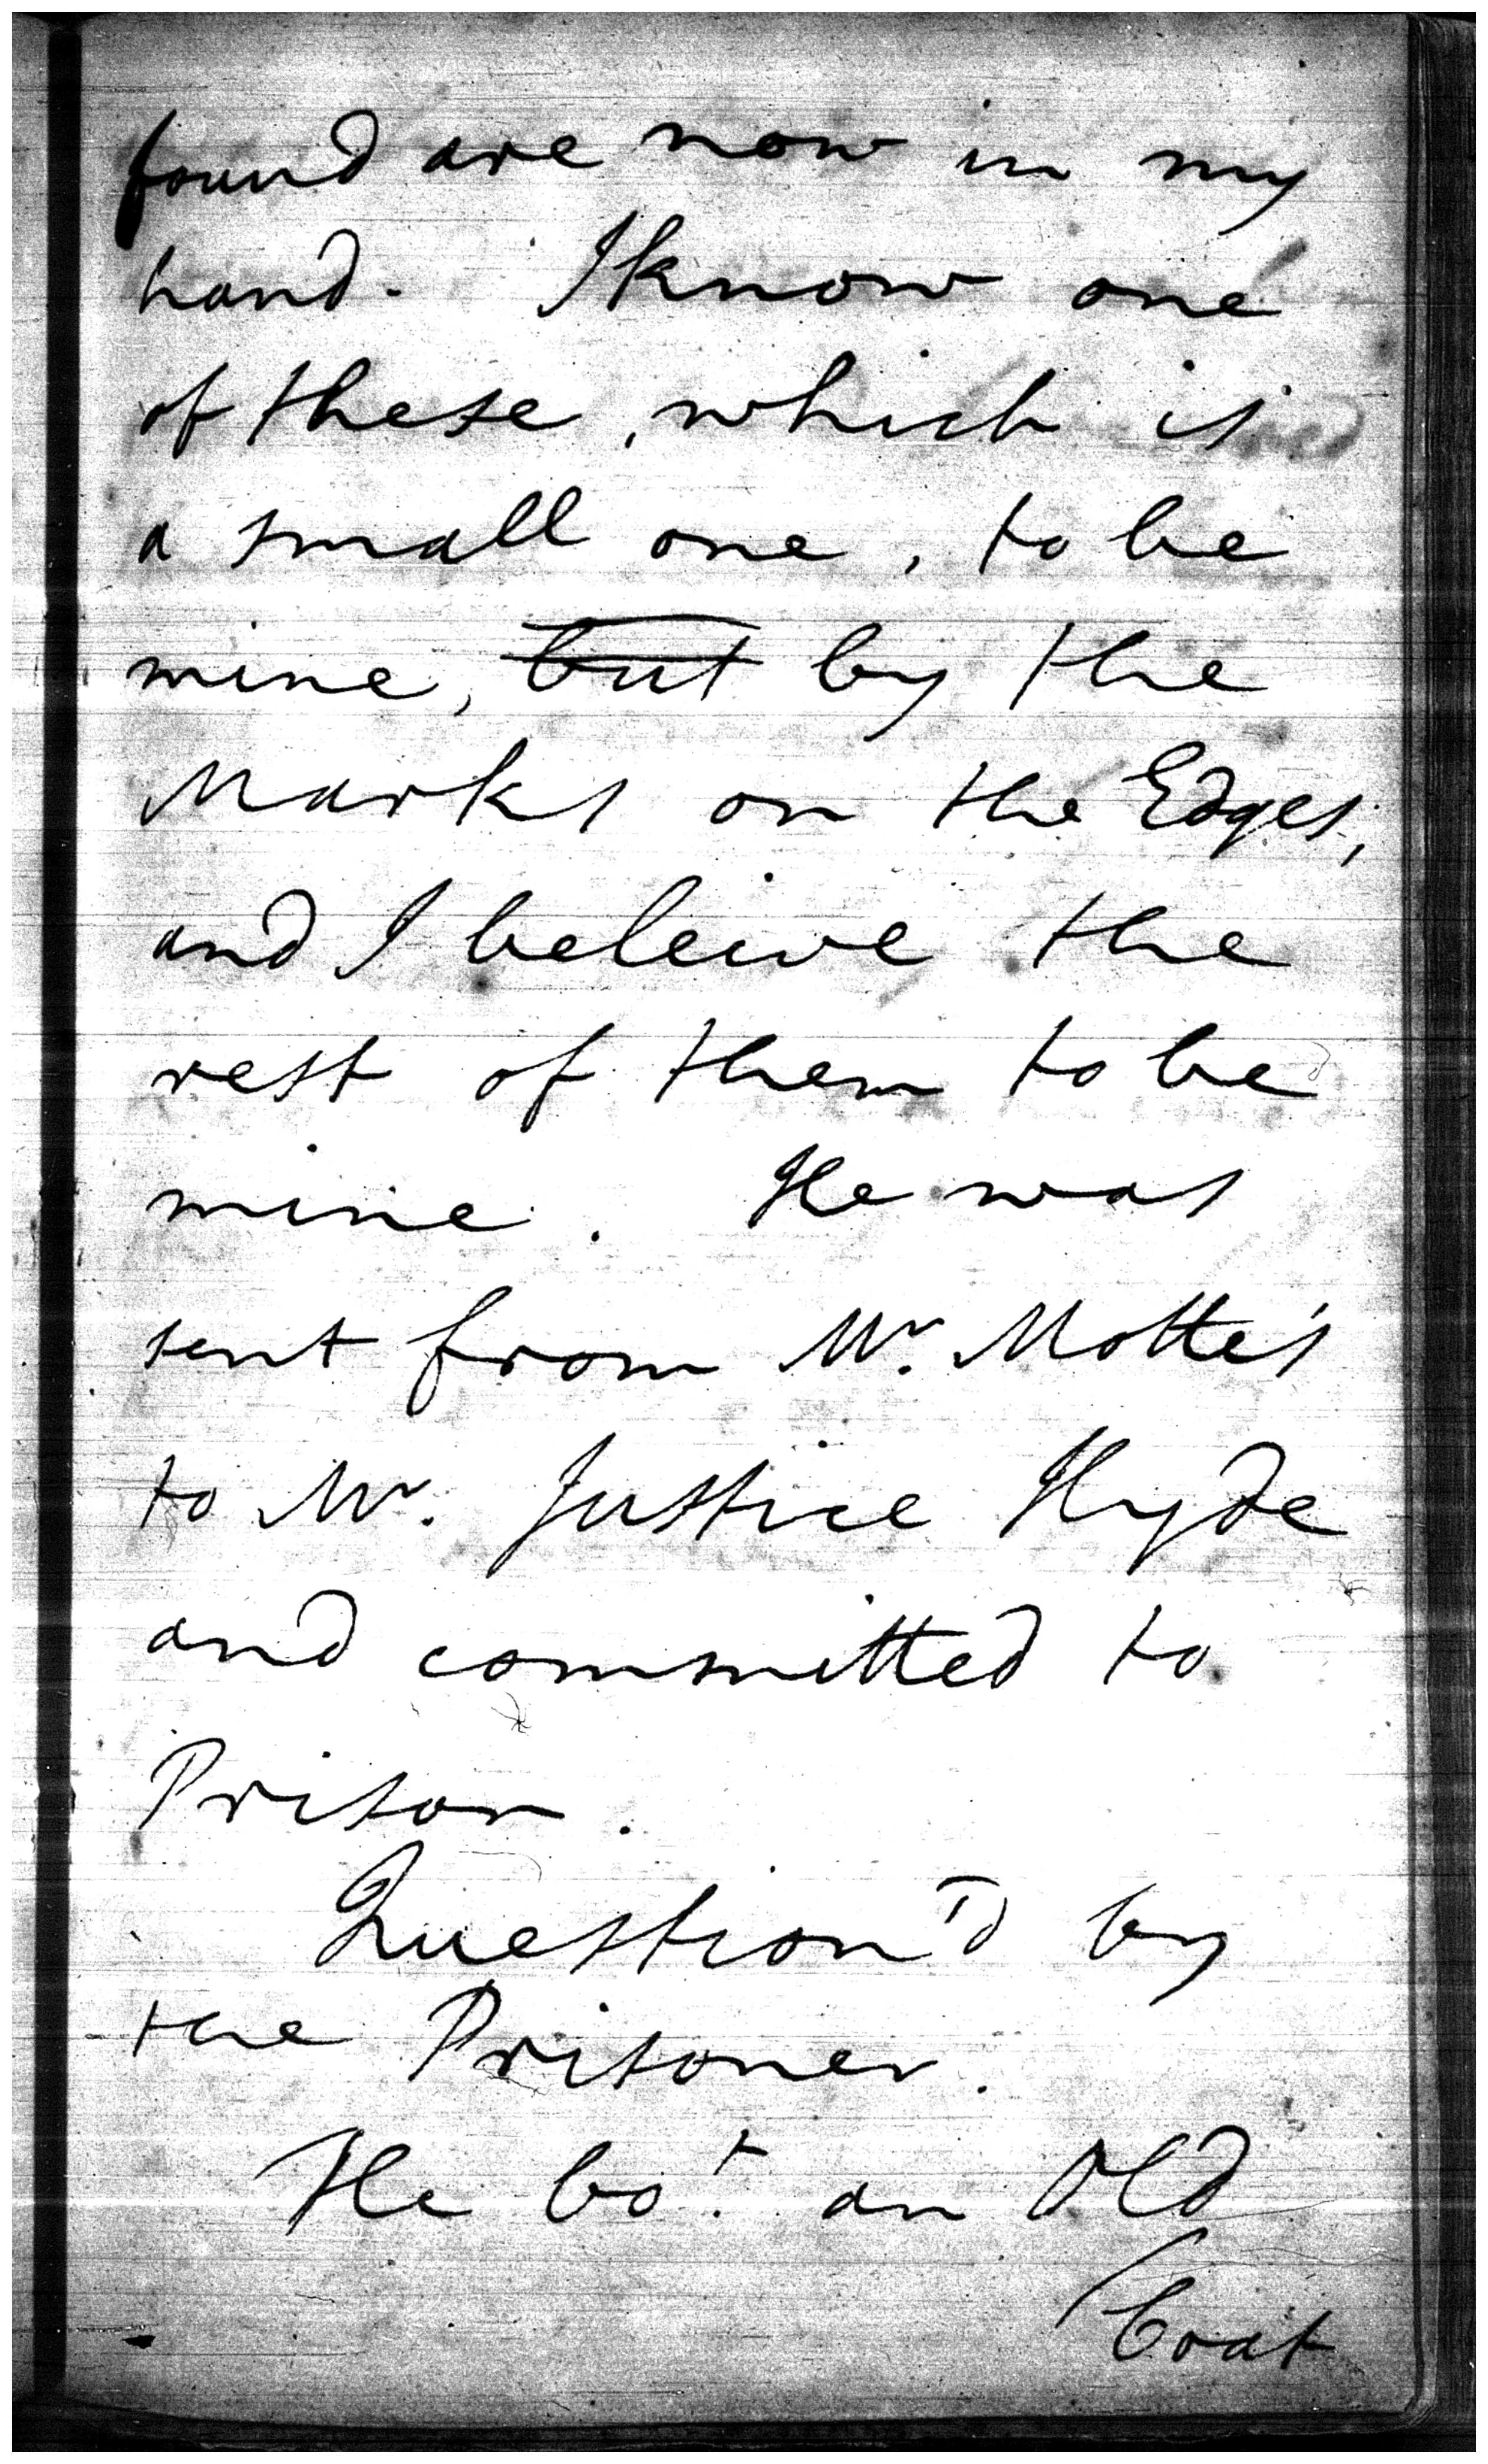 found are now in my
hand. I know one
of these, which is
a small one, to be
mine, but by the
Marks on the Edges,
and I beleive the
rest of them to be
mine. He was
sent from Mr. Motte's
to Mr. Justice Hyde
and committed to
Prison.
Question'd by
the Prisoner.
He bot. an Old
Coat